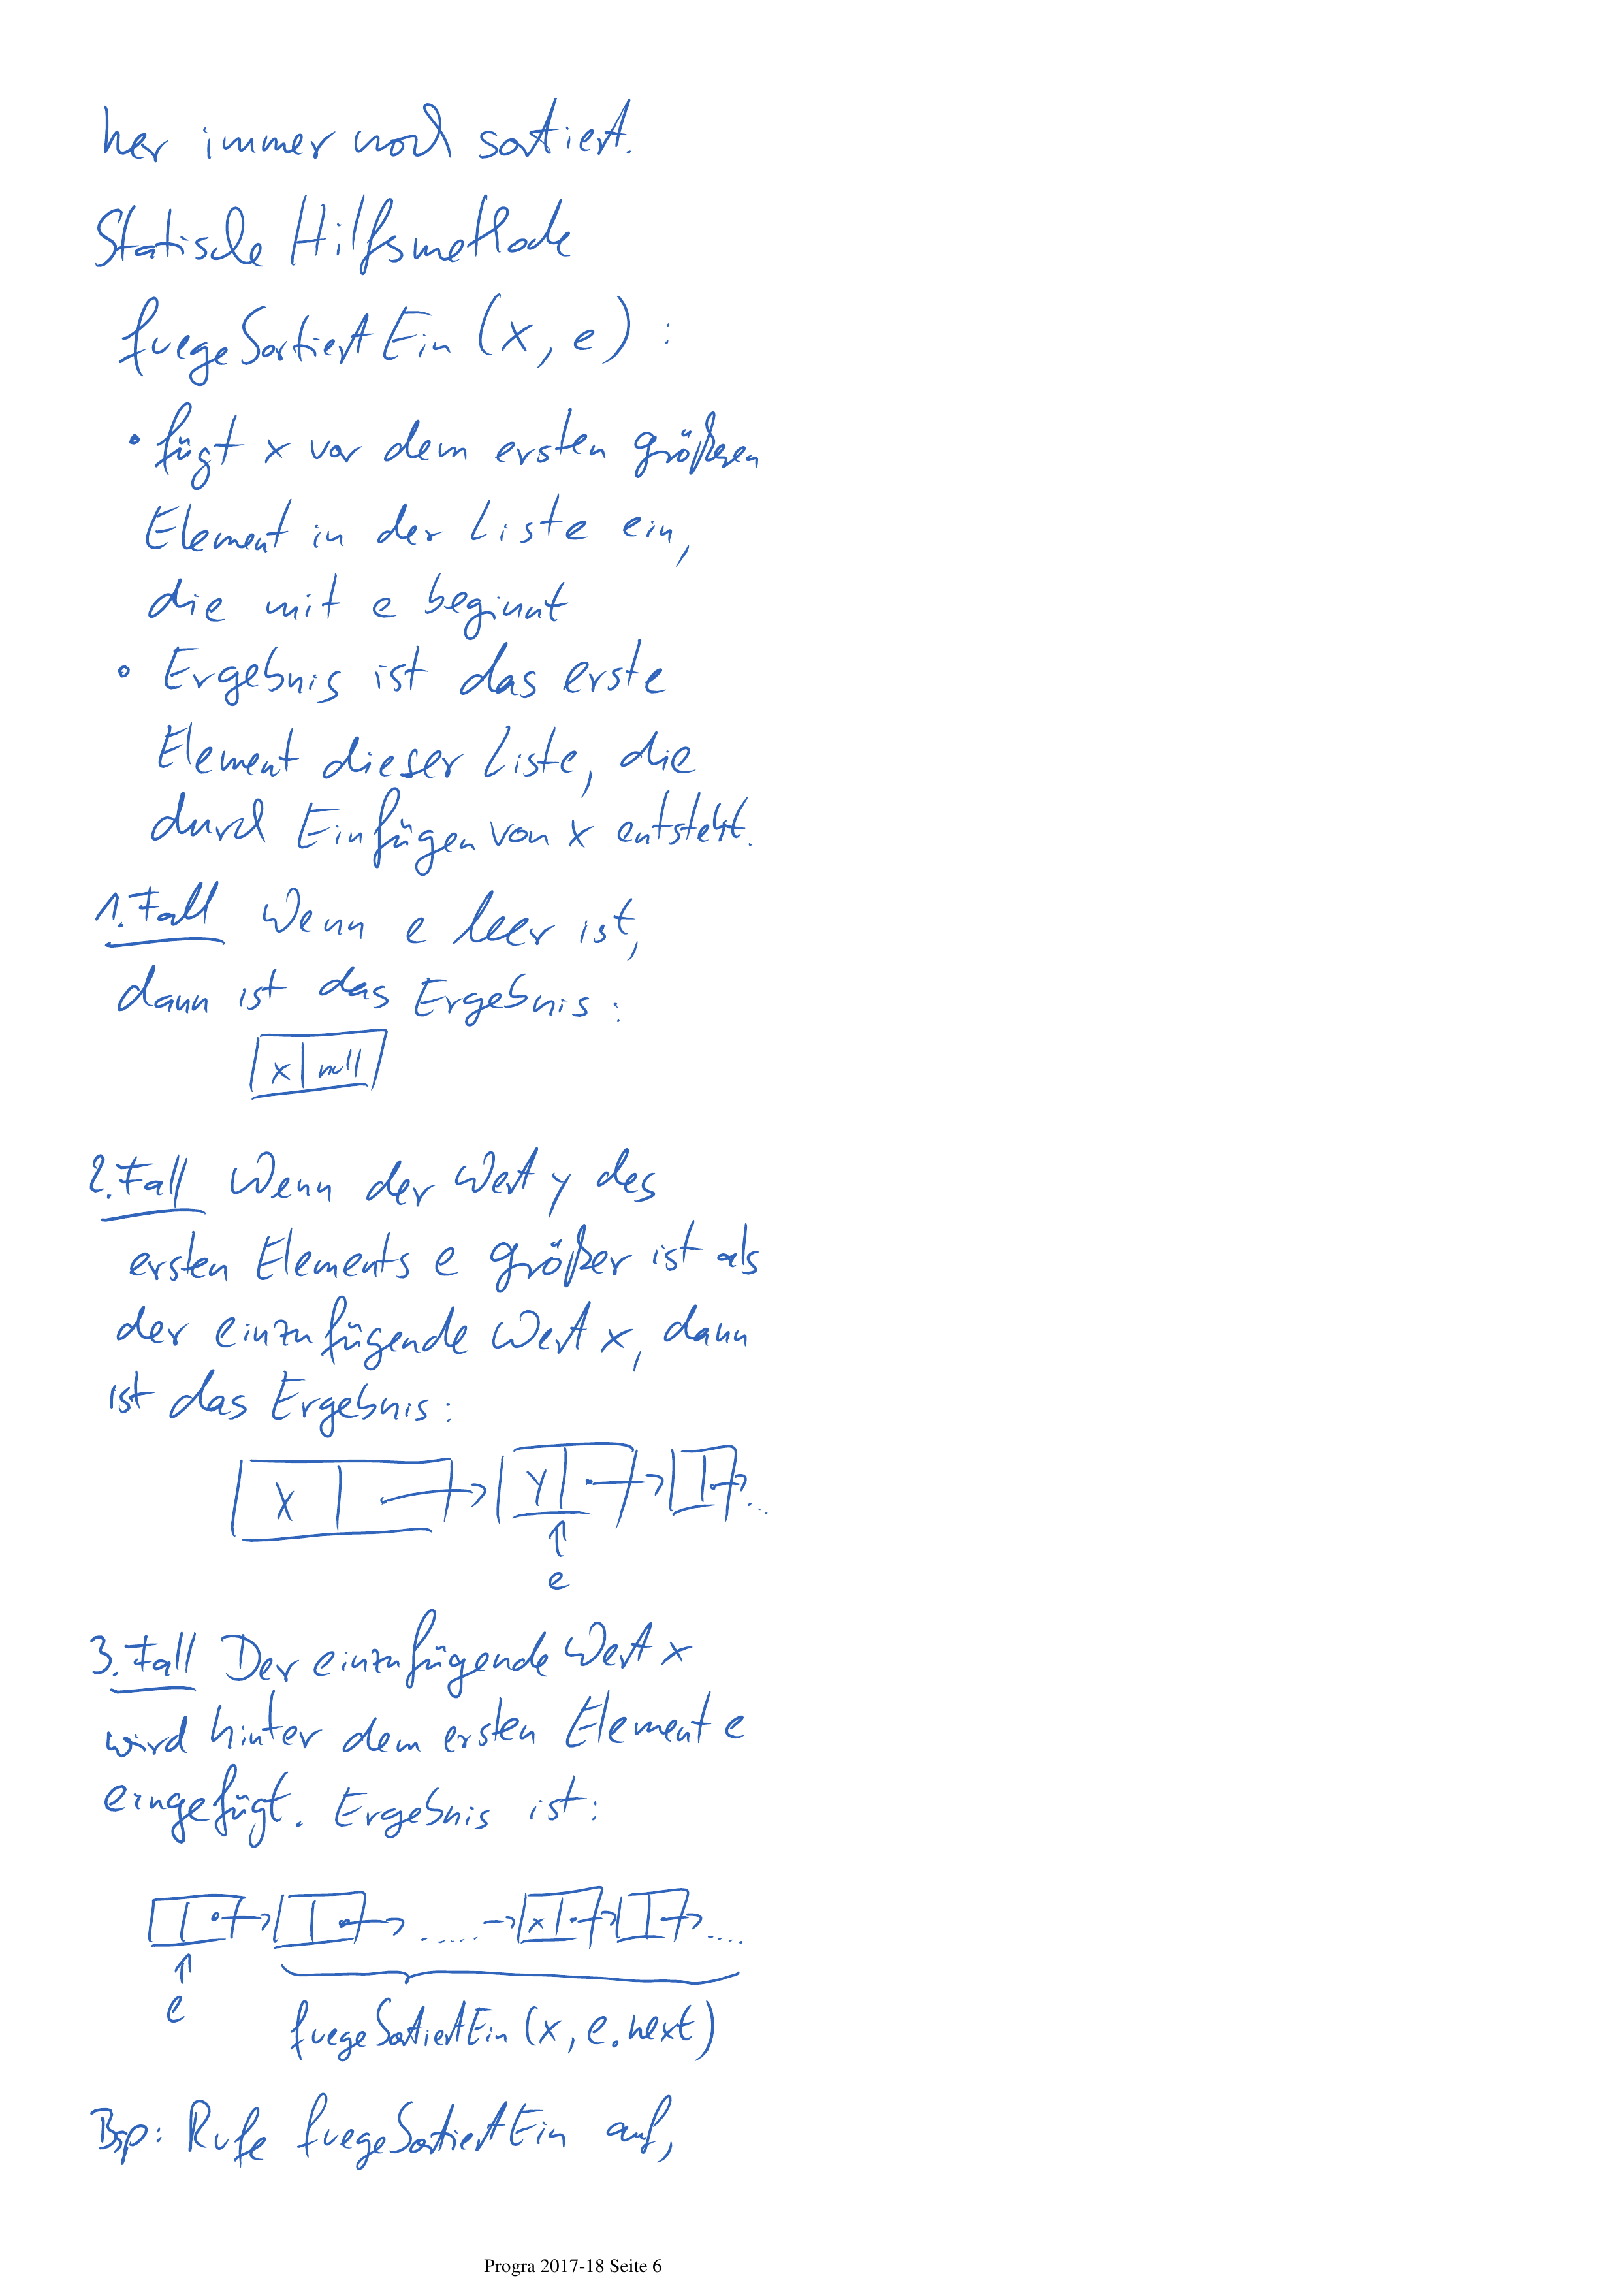 her immer noch sortiert.
Statische Hilfsmethode
fuegeSortiertEin (x, e) :
• fügt x vor dem ersten größeren
Element in der Liste ein,
die mit e beginnt
• Ergebnis ist das erste
Element dieser Liste, die
durch Einfügen von x entsteht.
1. Fall Wenn e leer ist,
dann ist das Ergebnis :
x | null
2. Fall Wenn der Wert y des
ersten Elements e größer ist als
der einzufügende Wert x, dann
ist das Ergebnis :
x y ...
e
3. Fall Der einzufügende Wert x
wird hinter dem ersten Element e
eingefügt. Ergebnis ist :
...... x ....
e
fuegeSortiertEin (x, e.next)
Bsp: Rufe fuegeSortiertEin auf,
Progra 2017-18 Seite 6